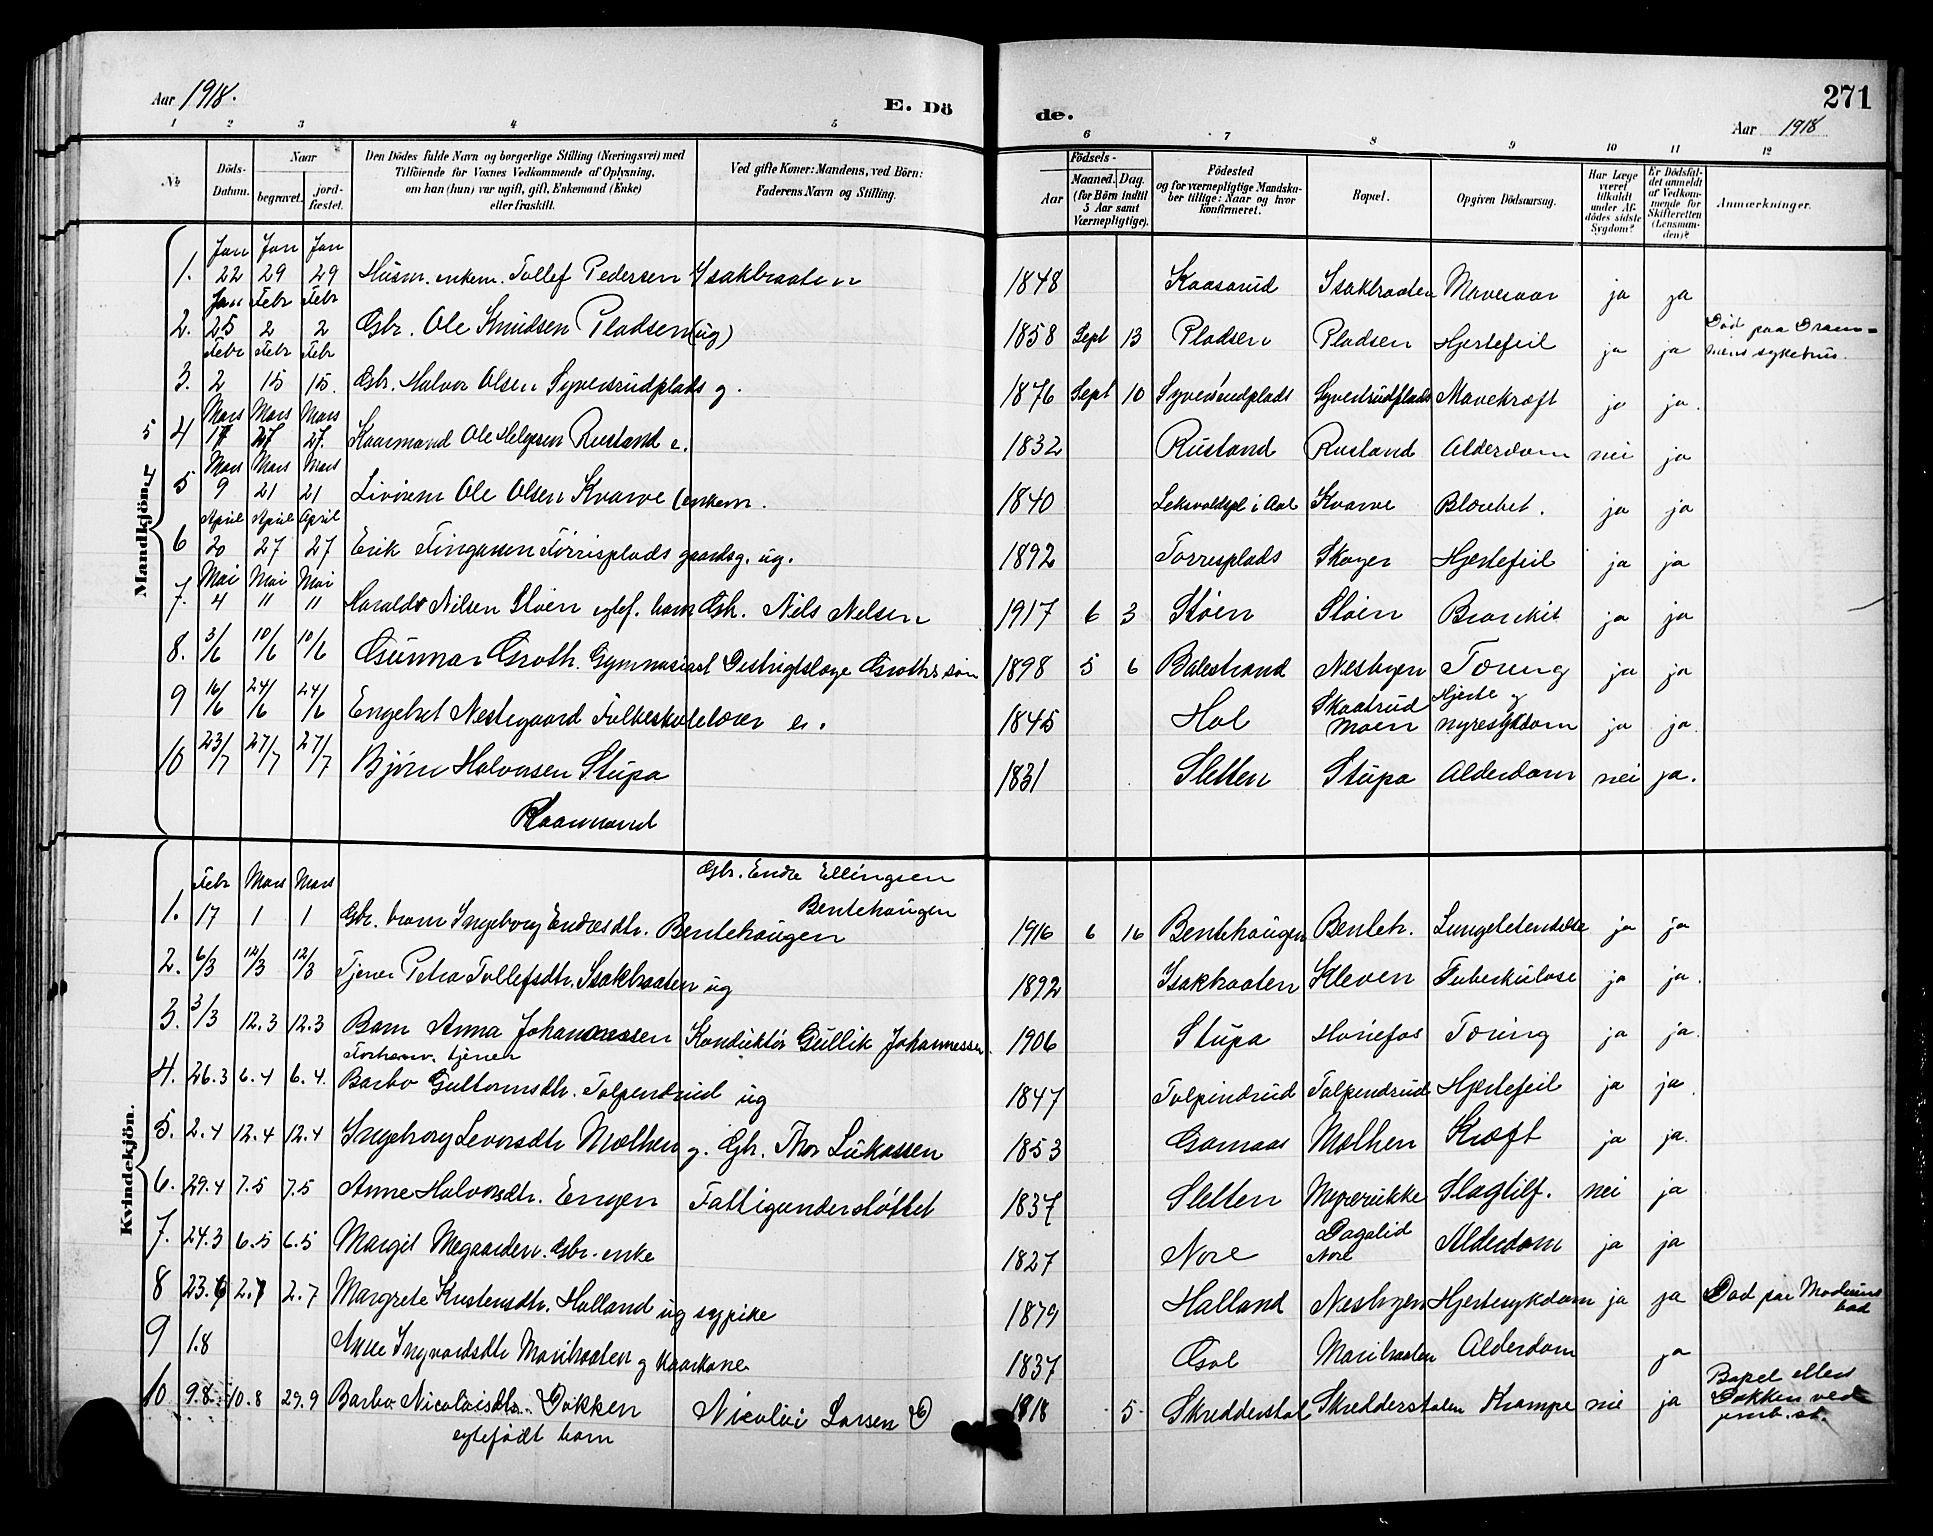 Aar 1918.
E. Dö
de.
271
Aar 1918
1 2 3 4 5 6 7 8 9 10 11 12
No
Döds-Datum.
Naar
begravet.
jord-fæstet.
Den Dödes fulde Navn og borgerlige Stilling (Næringsvei) med
Tilföiende for Voxnes Vedkommende af Oplysning,
om han (hun) var ugift, gift, Enkemand (Enke)
eller fraskilt.
Ved gifte Koner: Mandens, ved Börn:
Faderens Navn og Stilling.
Födsels-
Aar
Maaned. Dag.
(for Börn indtil
5 Aar samt
Værnepligtige).
Födested
og for værnepligtige Mandska-
ber tillige: Naar og hvor
konfirmeret.
Bopæl.
Opgiven Dödsaarsag.
Har Læge
været
tilkaldt
under Af-
dödes sidste
Sygdom?
Er Dödsfal-
det anmeldt
af Vedkom-
mende for
Skifteretten
(Lensman-
den)?
Anmærkninger.
Mandkjön.
1. Jan 22 Jan 29 Jan 29 Husm. enkem. Tollef Pedersen Isakbraaten 1848 Kaasarud Isakbraaten Mavesaar ja ja
2. Jan 25 Febr 2 Febr 2 Gbr. Ole Knudsen Pladsen (ug) 1858 Sept 13 Pladsen Pladsen Hjertefeil ja ja Död paa Dram-
mens sykehus.
3. Febr 2 Febr 15 Febr 15. Gbr. Halvor Olsen Syversrudplads g. 1876 Sept 10 Syversrudplads Syversrudplads Mavekræft ja ja.
5 4 Mars 17 Mars 27 Mars 27. Kaarmand Ole Helgesen Rustand e. 1832 Rustand Rustand Alderdom nei ja
4 5 Mars 9 Mars 21 Mars 21 Livörem Ole Olsen Kvarve (enkem. 1840 Leksvoldspl i Aal Kvarve Blærebet. ja ja
6 April 20 April 27 April 27 Erik Fingarsen Torrisplads gaardsg. ug. 1892 Torresplads Skoger Hjertefeil ja ja
7. Mai 4 Mai 11 Mai 11 Harald Nilsen Stöen egtef. barn Gbr. Nils Nilsen 1917 6 3 Stöen Stöen Bronkit ja ja
8. 3/6 10/6 10/6 Gunnar Groth. Gymnasiast Distriktslæge Groths sön 1898 5 6 Balestrand Nesbyen Tæring ja ja
9 16/6 24/6 24/6 Engebret Nestegaard Folkeskolelærer e. 1845 Hol Skaatrud Moen Hjerte og nyresykdom ja ja.
10 23/7 27/7 27/7 Bjørn Halvorsen Stupa 1831 Sletten Stupa Alderdom nei ja.
Kaarmand
Kvindekjön.
Gbr. Endre Ellingsen
Bentehaugen
1. Febr 17 Mars 1 Mars 1 Gbr. barn Ingeborg Endresdtr. Bentehaugen 1916 6 16 Bentehaugen Benteh. Lungebetendelse ja ja
2. 6/3 12/3 12/3 Tjener Petra Tollefsdtr. Isakbraaten ug 1892 Isakbraaten Kleven Tuberkulose ja ja.
3. 3/3 12.3 12.3 Barn Anna Johannessen Konduktör Gullik Johannessen. 1906 Stupa Hönefos Tæring ja ja.
Forhenv. tjener
4. 26.3 6.4 6.4. Barbo Guttormsdtr. Tolpendrud ug 1847 Tolpindrud Tolpendrud Hjertefeil ja ja.
5. 2.4 12.4 12.4 Ingeborg Levorsdtr Mælhen g. Gbr. Thor Lukassen 1853 Garnaas Mælhen Kræft ja ja.
6. 29.4 7.5 7.5 Anne Halvorsdtr. Engen Fattigunderstöttet 1837 Sletten Myrerukke Slagtilf. nei ja
7. 24.3 6.5 6.5 Margit Megaarden. Gbr. enke 1827 Nore Dagalid Nore Alderdom ja ja
8 23.6 2.7 2.7 Margrete Kristensdtr. Halland ug sypike 1879 Halland Nesbyen Hjertesykdom ja ja Död paa Modums
bad
9 1.8 Anne Ingvardsdtr Maribraaten g kaarkone 1837 Gol Maribraaten Alderdom ja
10. 9.8 10.8 29.9 Barbo Nicolaisdtr. Dokken Nicolai Larsen D 1918 5 Skredderstol Skredderstolen Krampe nei ja Bopel eller
Dokken ved
jernb. st.
egtefödt barn